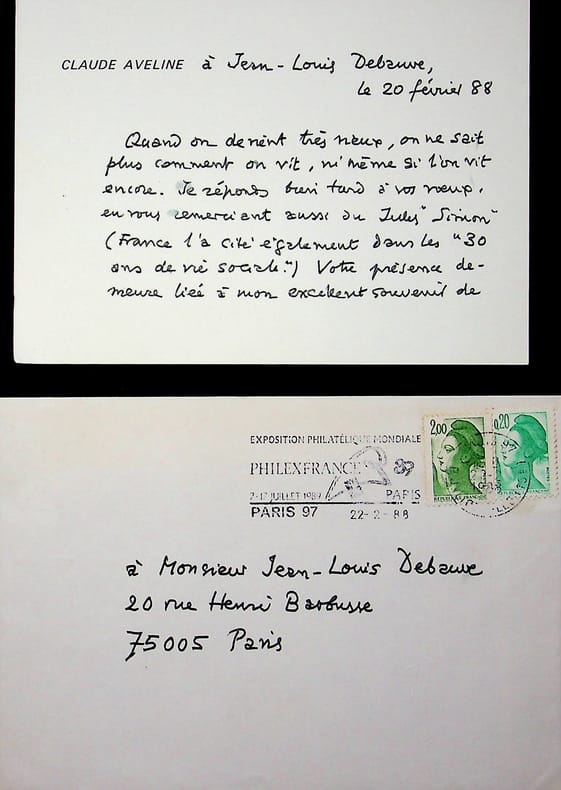 CLAUDE AVELINE à Jean-Louis Debauve,
le 20 février 88
Quand on devient très vieux, on ne sait
plus comment on vit, ni même si l'on vit
encore. Je réponds bien tard à vos vœux,
en vous remerciant aussi du "Jules Simon"
(France l'a cité également dans les "30
ans de vie sociale".) Votre présence de-
meure liée à mon excellent souvenir de
EXPOSITION PHILATÉLIQUE MONDIALE
PHILEXFRANCE 89
7-17 JUILLET 1989 PARIS
PARIS 97 22-2-88
2,00 0,20
REPUBLIQUE FRANÇAISE
à Monsieur Jean-Louis Debauve
20 rue Henri Barbusse
75005 Paris